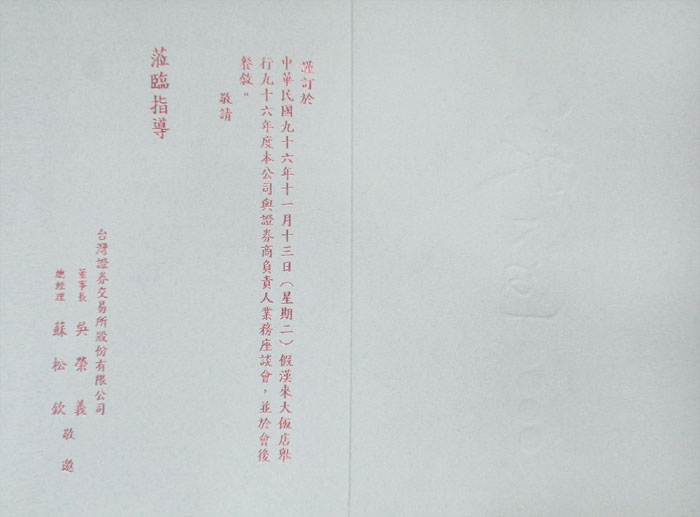 謹訂於
中華民國九十六年十一月十三日(星期二)假漢來大飯店舉
行九十六年度本公司與證券商負責人業務座談會,並於會後
餐敘。
敬請
蒞臨指導
台灣證券交易所股份有限公司
董事長 吳榮義
總經理 蘇松欽
敬邀